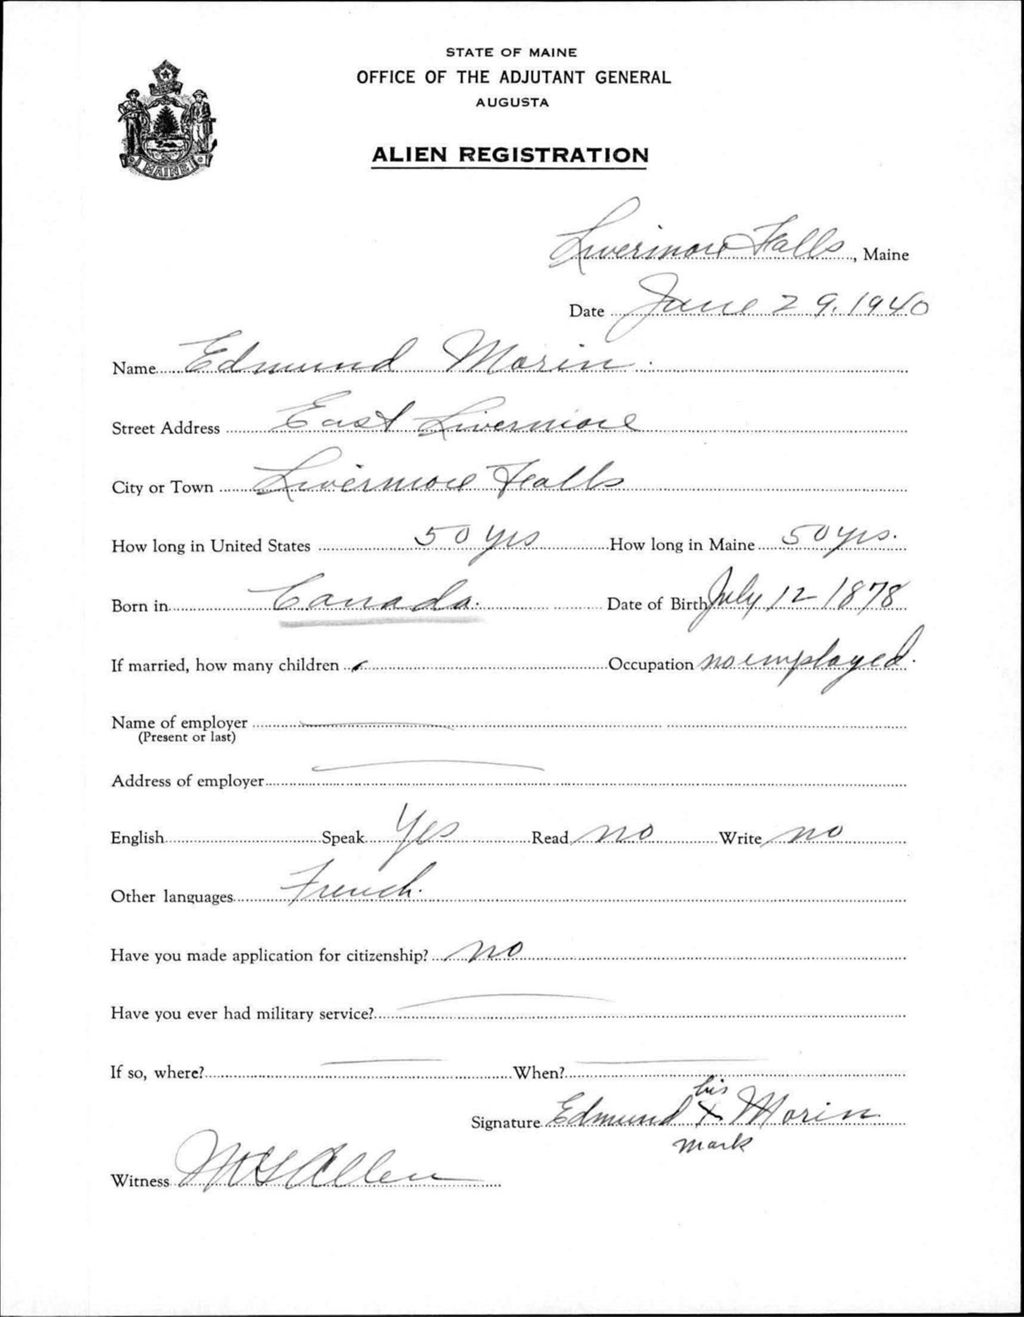 STATE OF MAINE
OFFICE OF THE ADJUTANT GENERAL
AUGUSTA
ALIEN REGISTRATION
MAINE
Livermore Falls, Maine
Date June 29, 1940
Name Edmund Morin
Street Address East Livermore
City or Town Livermore Falls
How long in United States 50 yrs How long in Maine 50 yrs.
Born in Canada. Date of Birth July 12 1878
If married, how many children Occupation no employed.
Name of employer
(Present or last)
Address of employer
English Speak Yes Read no Write no
Other languages French.
Have you made application for citizenship? no
Have you ever had military service?
If so, where? When?
his
Signature Edmund X Morin
mark
Witness Allen